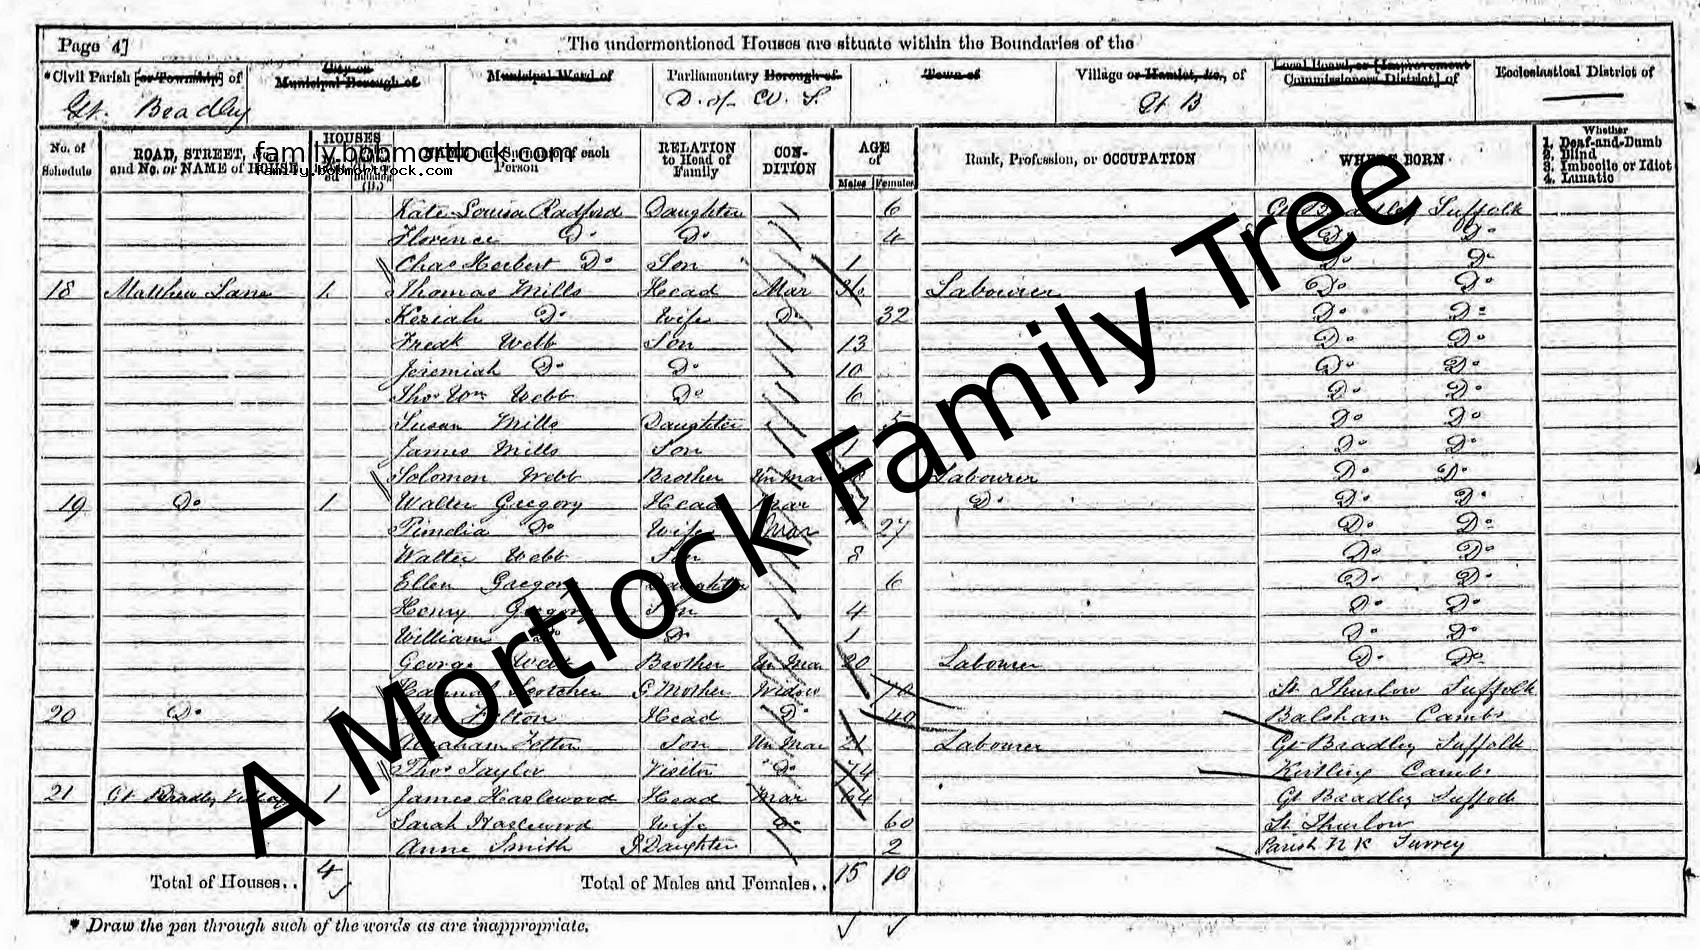 Page 4]
The undermentioned Houses are situate within the Boundaries of the
*Civil Parish [or Township] of
Gt. Bradley
City or
Municipal Borough of
Municipal Ward of
Parliamentary Borough of
D. of W. S.
Town of
Village or Hamlet, &c., of
Gt. B
Local Board, or [Improvement
Commissioners District] of
Ecclesiastical District of
No. of
Schedule
ROAD, STREET,
and No. or NAME of HOUSE
HOUSES
family.bobmortlock.com
family.bobmortlock.com
NAME and Surname of each
Person
RELATION
to Head of
Family
CON-
DITION
AGE
of
Males Females
Rank, Profession, or OCCUPATION
WHERE BORN
Whether
1. Deaf-and-Dumb
2. Blind
3. Imbecile or Idiot
4. Lunatic
Kate Louisa Radford Daughter 6 Gt Bradley Suffolk
Florence Do Do 4 Do Do
Chas Herbert Do Son 1 Do Do
18 Matthew Lane 1 Thomas Mills Head Mar Labourer Do Do
Keziah Do Wife Do 32 Do Do
Fredk Webb Son 13 Do Do
Jeremiah Do Do 10 Do Do
Thos Wm Webb Do 6 Do Do
Susan Mills Daughter 5 Do Do
James Mills Son 1 Do Do
Solomon Webb Brother Un Mar Labourer Do Do
19 Do 1 Walter Gregory Head Mar Do Do Do
Do Wife Mar 27 Do Do
Walter Webb Son 8 Do Do
Ellen Gregory Daughter 6 Do Do
Henry Gregory Son 4 Do Do
William Do Do 1 Do Do
George Webb Brother Un Mar 20 Labourer Do Do
Hannah Scotcher G Mother Widow 70 Lt Thurlow Suffolk
20 Do 1 Ann Felton Head Do 40 Balsham Cambs
Abraham Felton Son Un Mar 21 Labourer Gt Bradley Suffolk
Thos Taylor Visitor Do 74 Kirtling Cambs
21 Gt Bradley Village 1 James Haslewood Head Mar 64 Gt Bradley Suffolk
Sarah Haslewood Wife Do 60 Lt Thurlow
Anne Smith G Daughter 2 Parish N K Surrey
Total of Houses.. 4
Total of Males and Females.. 15 10
* Draw the pen through such of the words as are inappropriate.
A Mortlock Family Tree